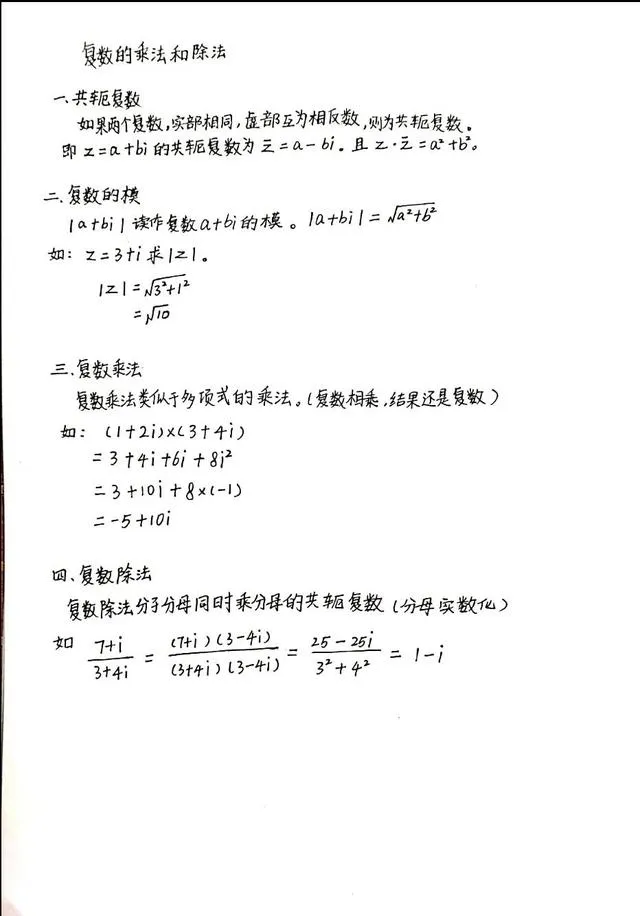 复数的乘法和除法
一、共轭复数
如果两个复数,实部相同,虚部互为相反数,则为共轭复数。
即 z=a+bi 的共轭复数为 z̅=a-bi。且 z·z̅=a²+b²。
二、复数的模
|a+bi| 读作复数a+bi的模。|a+bi|=√(a²+b²)
如: z=3+i 求|z|。
|z|=√(3²+1²)
=√10
三、复数乘法
复数乘法类似于多项式的乘法。(复数相乘,结果还是复数)
如: (1+2i)×(3+4i)
=3+4i+6i+8i²
=3+10i+8×(-1)
=-5+10i
四、复数除法
复数除法分子分母同时乘分母的共轭复数(分母实数化)
如 (7+i)/(3+4i) = (7+i)(3-4i)/(3+4i)(3-4i) = (25-25i)/(3²+4²) = 1-i